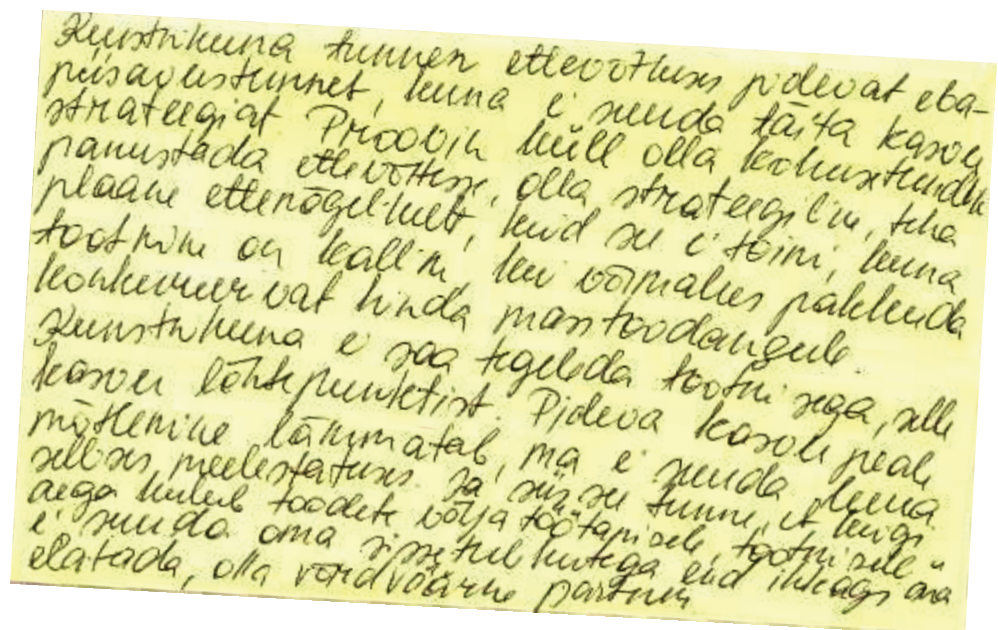 Kunstnikuna tunnen ettevõtluses pidevat eba-
piisavustunnet, kuna ei suuda täita kasvu
strateegiat. Proovin küll olla kohusetundlik
panustada ettevõttesse, olla strateegiline, teha
plaane ettenägelikult, kuid see ei toimi, kuna
tootmine on kallim, kui võimalus pakkuda
konkureerivat hinda masstoodangule.
Kunstnikuna ei saa tegeleda tootmisega, selle
kasvu lähtepunktist. Pideva kasvu peale
mõtlemine lämmatab, ma ei suuda luua
sellises meelestatuses. Ja siis see tunne, et kuigi
aega kulub toodete välja töötamisele, tootmisele
ei suuda oma sissetulekutega end ikkagi ära
elatada, olla võrdväärne partner.